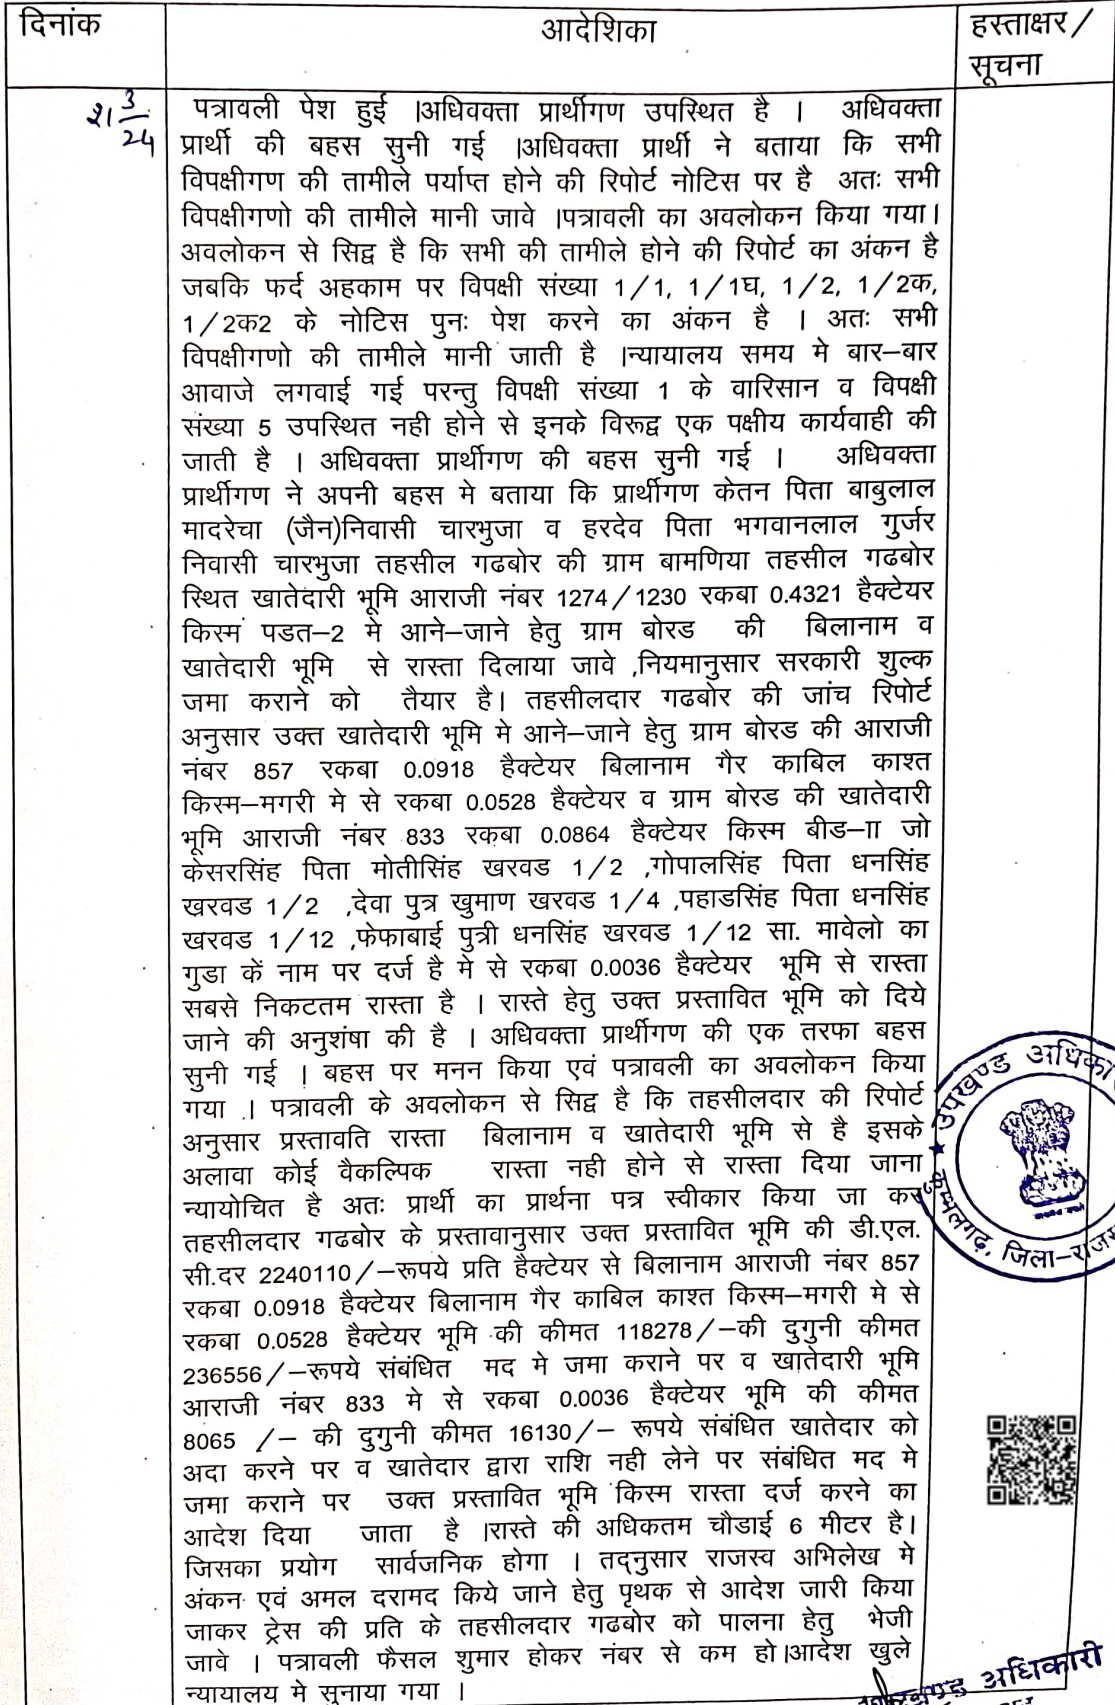 दिनांक
आदेशिका
हस्ताक्षर/
सूचना
21 3/24
पत्रावली पेश हुई ।अधिवक्ता प्रार्थीगण उपस्थित है । अधिवक्ता
प्रार्थी की बहस सुनी गई ।अधिवक्ता प्रार्थी ने बताया कि सभी
विपक्षीगण की तामीले पर्याप्त होने की रिपोर्ट नोटिस पर है अतः सभी
विपक्षीगणो की तामीले मानी जावे ।पत्रावली का अवलोकन किया गया।
अवलोकन से सिद्व है कि सभी की तामीले होने की रिपोर्ट का अंकन है
जबकि फर्द अहकाम पर विपक्षी संख्या 1/1, 1/1घ, 1/2, 1/2क,
1/2क2 के नोटिस पुनः पेश करने का अंकन है । अतः सभी
विपक्षीगणो की तामीले मानी जाती है ।न्यायालय समय मे बार–बार
आवाजे लगवाई गई परन्तु विपक्षी संख्या 1 के वारिसान व विपक्षी
संख्या 5 उपस्थित नही होने से इनके विरूद्व एक पक्षीय कार्यवाही की
जाती है । अधिवक्ता प्रार्थीगण की बहस सुनी गई । अधिवक्ता
प्रार्थीगण ने अपनी बहस मे बताया कि प्रार्थीगण केतन पिता बाबुलाल
मादरेचा (जैन)निवासी चारभुजा व हरदेव पिता भगवानलाल गुर्जर
निवासी चारभुजा तहसील गढबोर की ग्राम बामणिया तहसील गढबोर
स्थित खातेदारी भूमि आराजी नंबर 1274/1230 रकबा 0.4321 हैक्टेयर
किस्म पडत–2 मे आने–जाने हेतु ग्राम बोरड की बिलानाम व
खातेदारी भूमि से रास्ता दिलाया जावे ,नियमानुसार सरकारी शुल्क
जमा कराने को तैयार है। तहसीलदार गढबोर की जांच रिपोर्ट
अनुसार उक्त खातेदारी भूमि मे आने–जाने हेतु ग्राम बोरड की आराजी
नंबर 857 रकबा 0.0918 हैक्टेयर बिलानाम गैर काबिल काश्त
किस्म–मगरी मे से रकबा 0.0528 हैक्टेयर व ग्राम बोरड की खातेदारी
भूमि आराजी नंबर 833 रकबा 0.0864 हैक्टेयर किस्म बीड–II जो
केसरसिंह पिता मोतीसिंह खरवड 1/2 ,गोपालसिंह पिता धनसिंह
खरवड 1/2 ,देवा पुत्र खुमाण खरवड 1/4 ,पहाडसिंह पिता धनसिंह
खरवड 1/12 ,फेफाबाई पुत्री धनसिंह खरवड 1/12 सा. मावेलो का
गुडा कें नाम पर दर्ज है मे से रकबा 0.0036 हैक्टेयर भूमि से रास्ता
सबसे निकटतम रास्ता है । रास्ते हेतु उक्त प्रस्तावित भूमि को दिये
जाने की अनुशंषा की है । अधिवक्ता प्रार्थीगण की एक तरफा बहस
सुनी गई । बहस पर मनन किया एवं पत्रावली का अवलोकन किया
गया । पत्रावली के अवलोकन से सिद्व है कि तहसीलदार की रिपोर्ट
अनुसार प्रस्तावति रास्ता बिलानाम व खातेदारी भूमि से है इसके
अलावा कोई वैकल्पिक रास्ता नही होने से रास्ता दिया जाना
न्यायोचित है अतः प्रार्थी का प्रार्थना पत्र स्वीकार किया जा कर
तहसीलदार गढबोर के प्रस्तावानुसार उक्त प्रस्तावित भूमि की डी.एल.
सी.दर 2240110/–रूपये प्रति हैक्टेयर से बिलानाम आराजी नंबर 857
रकबा 0.0918 हैक्टेयर बिलानाम गैर काबिल काश्त किस्म–मगरी मे से
रकबा 0.0528 हैक्टेयर भूमि की कीमत 118278/–की दुगुनी कीमत
236556/–रूपये संबंधित मद मे जमा कराने पर व खातेदारी भूमि
आराजी नंबर 833 मे से रकबा 0.0036 हैक्टेयर भूमि की कीमत
8065 /– की दुगुनी कीमत 16130/– रूपये संबंधित खातेदार को
अदा करने पर व खातेदार द्वारा राशि नही लेने पर संबंधित मद मे
जमा कराने पर उक्त प्रस्तावित भूमि किस्म रास्ता दर्ज करने का
आदेश दिया जाता है ।रास्ते की अधिकतम चौडाई 6 मीटर है।
जिसका प्रयोग सार्वजनिक होगा । तद्नुसार राजस्व अभिलेख मे
अंकन एवं अमल दरामद किये जाने हेतु पृथक से आदेश जारी किया
जाकर ट्रेस की प्रति के तहसीलदार गढबोर को पालना हेतु भेजी
जावे । पत्रावली फैसल शुमार होकर नंबर से कम हो।आदेश खुले
न्यायालय मे सुनाया गया ।
उपखण्ड अधिका
कुम्भलगढ़, जिला–राजस
उपखण्ड अधिकारी